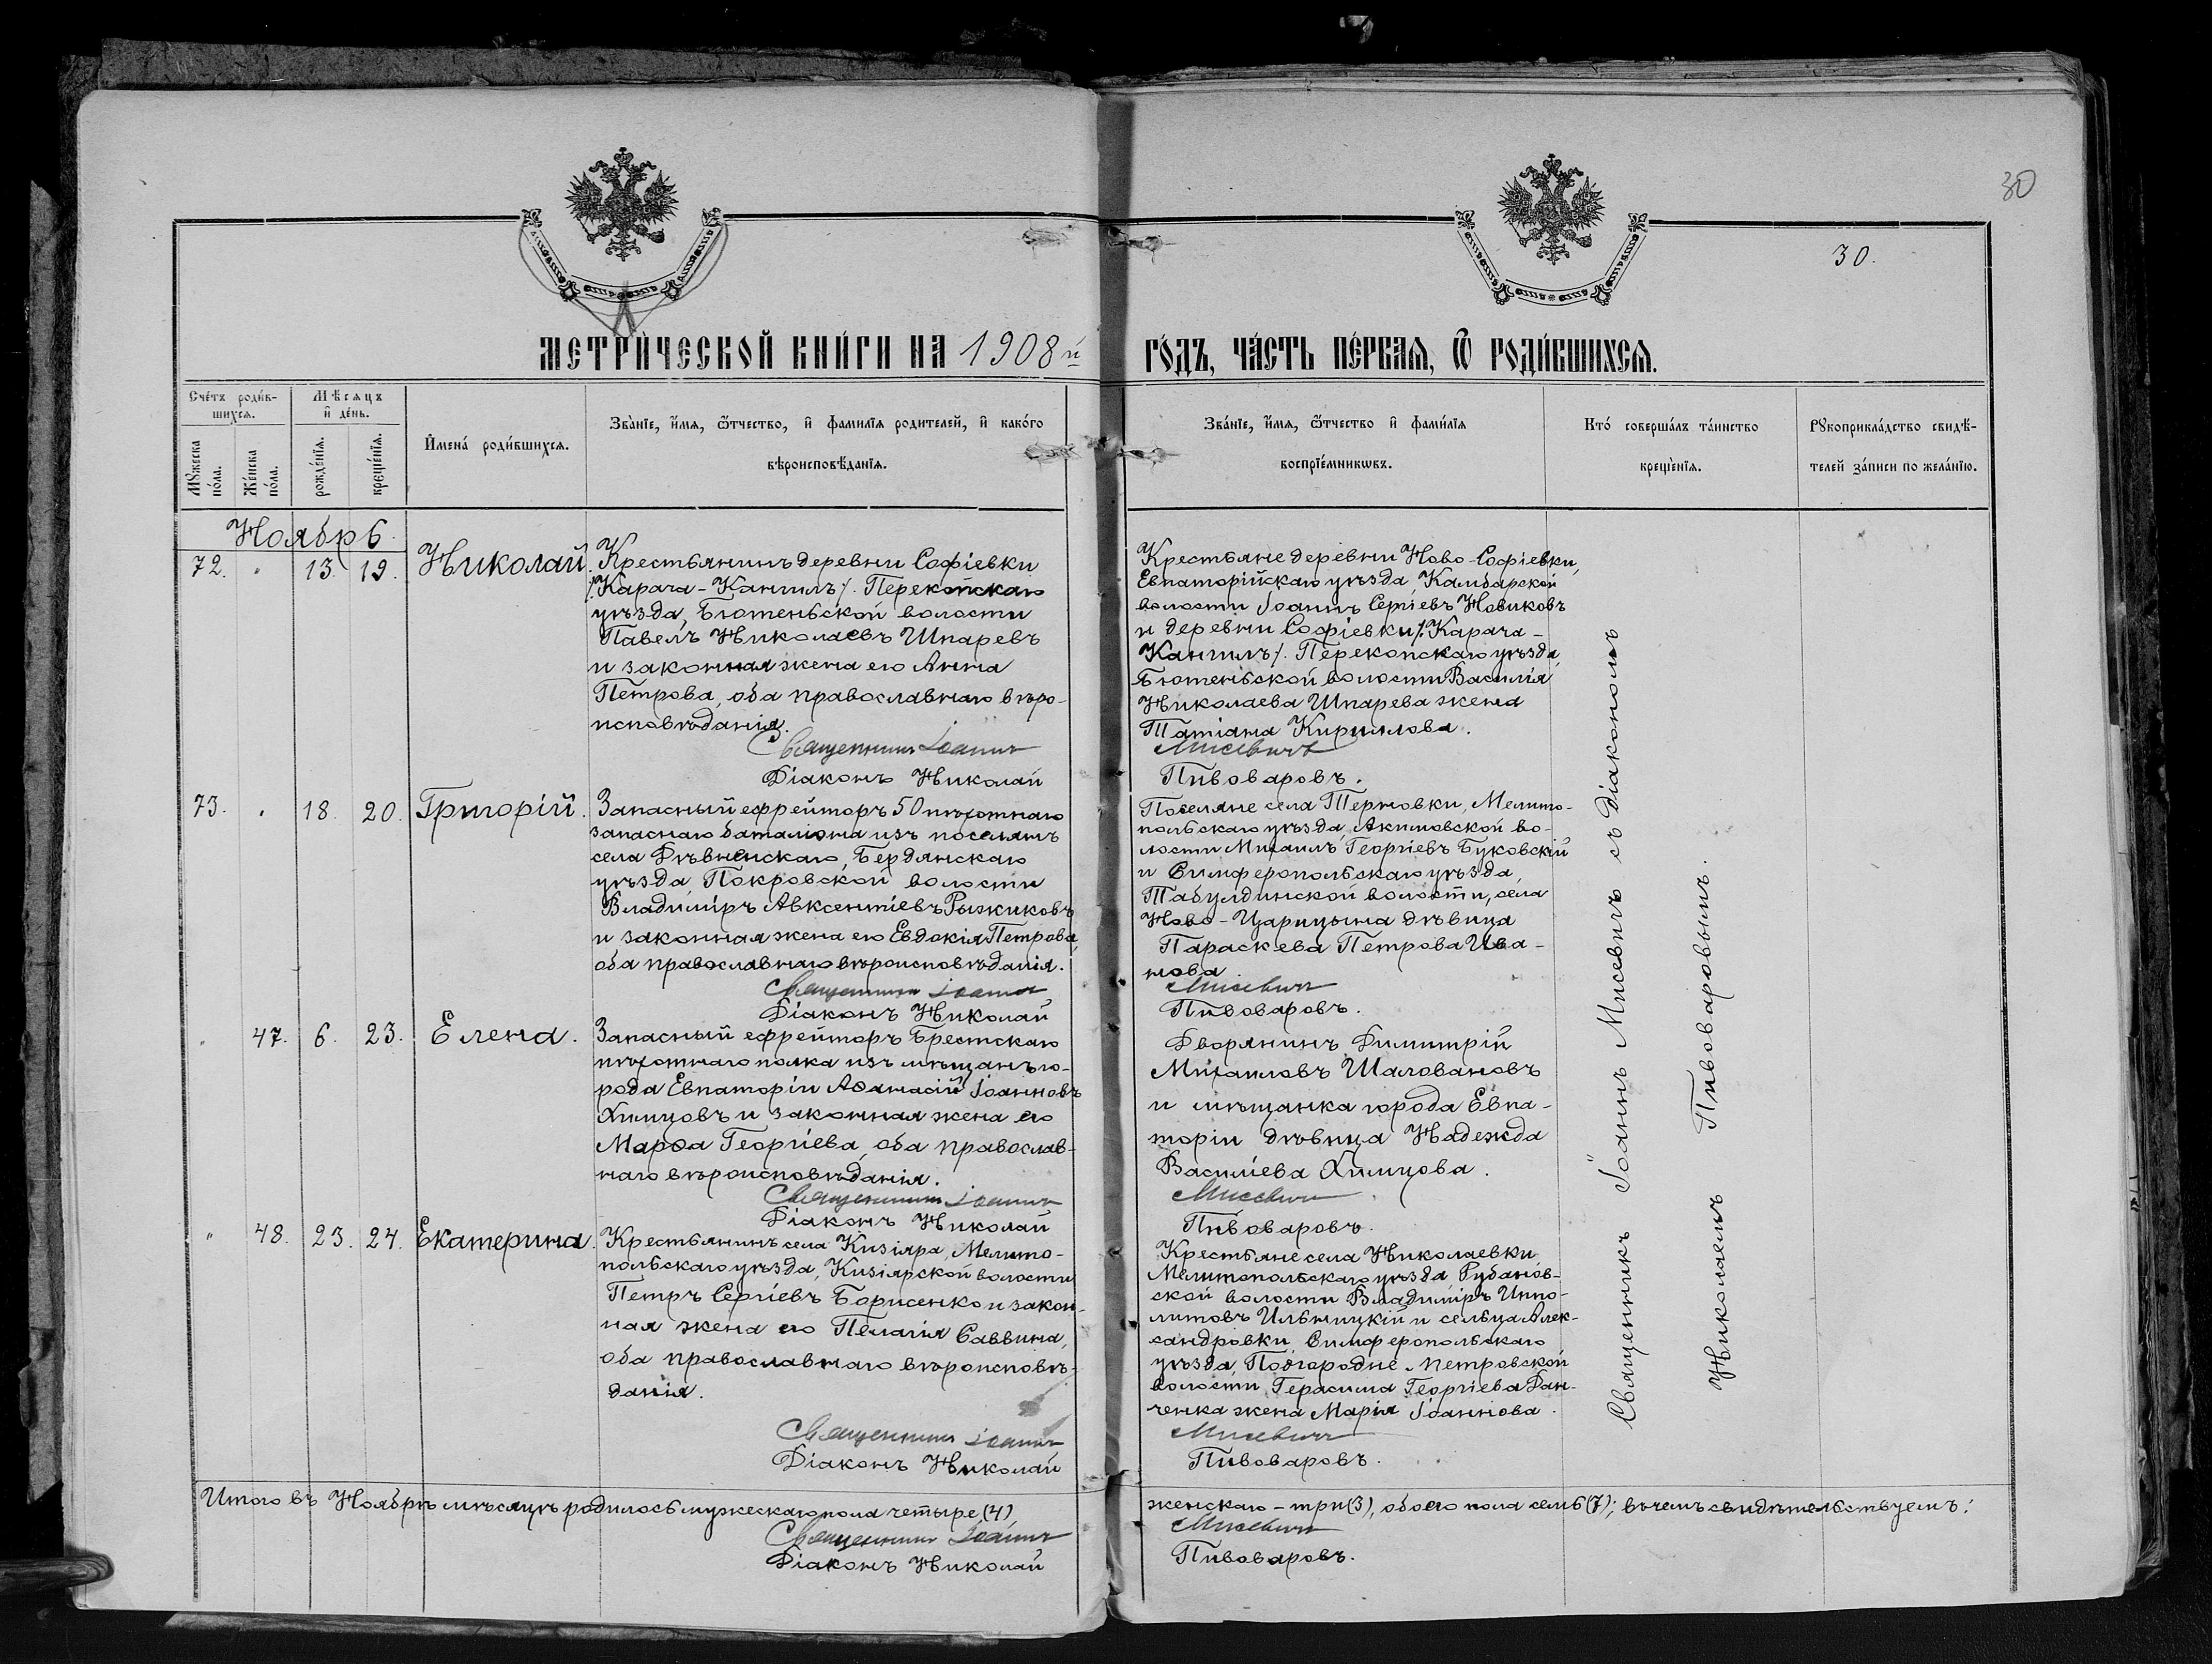 30
30.
МЕТРИЧЕСКОЙ КНИГИ НА 1908й ГОДЪ, ЧАСТЬ ПЕРВАЯ, Ѿ РОДИВШИХСЯ.
Счетъ родив-
шихся.
Мѣсяцъ
и день.
Мужеска
пола.
Женска
пола.
рожденія.
крещенія.
Имена родившихся.
Званіе, имя, ѿчество, и фамилія родителей, и какого
вѣроисповѣданія.
Званіе, имя, ѿчество и фамилія
воспріемникѡвъ.
Кто совершалъ таинство
крещенія.
Рукоприкладство свидѣ-
телей записи по желанію.
Ноябрь.
72. " 13. 19. Николай.
Крестьянинъ деревни Софіевки
/:Карача-Кангилъ:/. Перекопскаго
уѣзда, Бютеньской волости
Павелъ Николаевъ Шпаревъ
и законная жена его Анна
Петрова, оба православнаго вѣро-
исповѣданія.
Священникъ Іоаннъ
Діаконъ Николай
Крестьяне деревни Ново-Софіевки,
Евпаторійскаго уѣзда, Камбарской
волости Іоаннъ Сергіевъ Новиковъ
и деревни Софіевки /:Карача-
Кангилъ/. Перекопскаго уѣзда,
Бютеньской волости Василія
Николаева Шпарева жена
Татіана Кириллова.
Мисевичъ
Пивоваровъ.
73. " 18. 20. Григорій.
Запасный ефрейторъ 50 пѣхотнаго
запаснаго баталіона изъ поселянъ
села Дѣвненскаго, Бердянскаго
уѣзда, Покровской волости
Владиміръ Авксентіевъ Рыжиковъ
и законная жена его Евдокія Петрова,
оба православнаго вѣроисповѣданія.
Священникъ Іоаннъ
Діаконъ Николай
Поселяне села Терновки, Мелито-
польскаго уѣзда, Акимовской во-
лости Михаилъ Георгіевъ Буковскій
и Симферопольскаго уѣзда,
Табулдинской волости, села
Ново-Царицына дѣвица
Параскева Петрова Ива-
нова.
Мисевичъ
Пивоваровъ.
" 47. 6. 23. Елена.
Запасный ефрейторъ Брестскаго
пѣхотнаго полка изъ мѣщанъ го-
рода Евпаторіи Аѳанасій Іоанновъ
Химцовъ и законная жена его
Марѳа Георгіева, оба православ-
наго вѣроисповѣданія.
Священникъ Іоаннъ
Діаконъ Николай
Дворянинъ Димитрій
Михаиловъ Шаловановъ
и мѣщанка города Евпа-
торіи дѣвица Надежда
Василіева Химцова.
Мисевичъ
Пивоваровъ.
" 48. 23. 24. Екатерина.
Крестьянинъ села Кизіяра, Мелито-
польскаго уѣзда, Кизіярской волости
Петръ Сергіевъ Борисенко и закон-
ная жена его Пелагія Саввина,
оба православнаго вѣроисповѣ-
данія.
Священникъ Іоаннъ
Діаконъ Николай
Крестьяне села Николаевки
Мелитопольскаго уѣзда, Рубанов-
ской волости Владиміръ Иппо-
литовъ Ильницкій и сельца Алек-
сандровки, Симферопольскаго
уѣзда, Подгородне-Петровской
волости Герасима Георгіева Дан-
ченка жена Марія Іоаннова.
Мисевичъ
Пивоваровъ.
Священникъ Іоаннъ Мисевичъ съ діакономъ
Николаемъ Пивоваровымъ.
Итого въ Ноябрѣ мѣсяцѣ родилось мужескаго пола четыре (4), женскаго - три (3), обоего пола семь (7); въ чемъ свидѣтельствуемъ:
Священникъ Іоаннъ Мисевичъ
Діаконъ Николай Пивоваровъ.